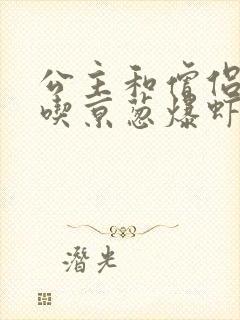 公主和僧侣
喫京葱爆虾
潜光